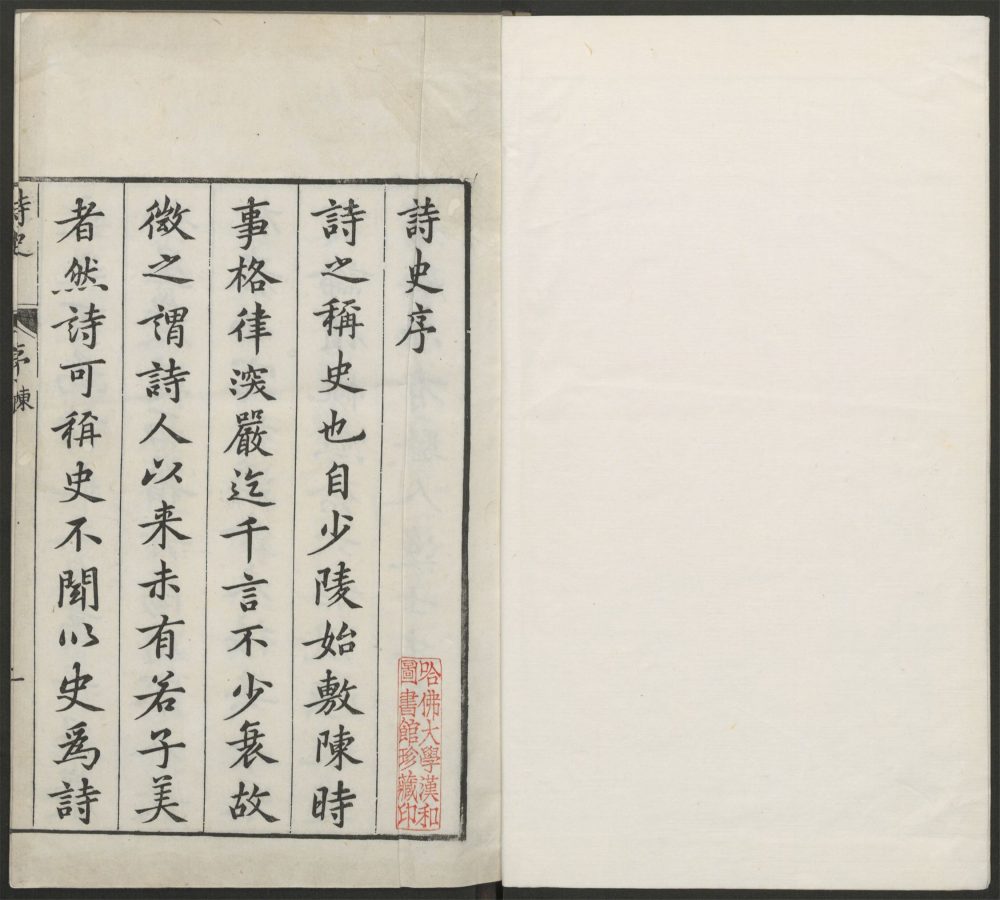 詩史序
哈佛大學漢和
圖書館珍藏印
詩之稱史也自少陵始敷陳時
事格律深嚴迄千言不少衰故
微之謂詩人以来未有若子美
者然詩可稱史不聞以史爲詩
詩史
序陳
一